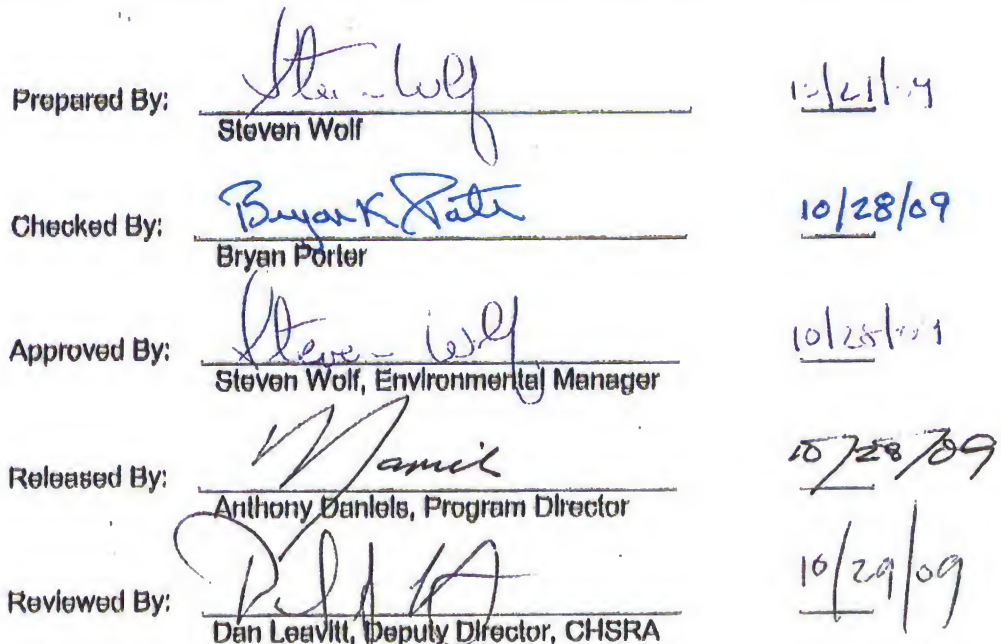 Prepared By: Steven Wolf
Steven Wolf
Checked By: Bryan K Porter 10/28/09
Bryan Porter
Approved By: Steven Wolf 10/28/09
Steven Wolf, Environmental Manager
Released By: 10/28/09
Anthony Daniels, Program Director
Reviewed By: 10/29/09
Dan Leavitt, Deputy Director, CHSRA